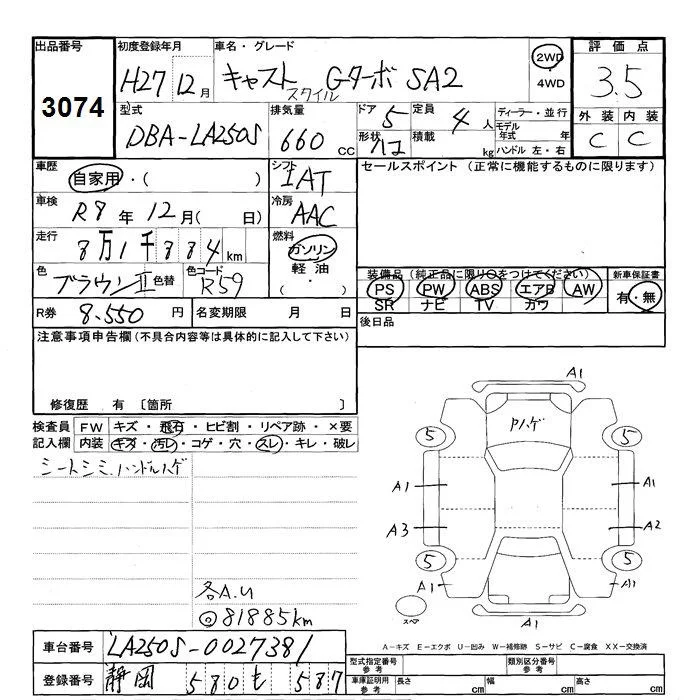 出品番号
3074
初度登録年月
H27 12月
車名・グレード
キャスト Gターボ SA2
スタイル
2WD
・
4WD
評価点
3.5
外装 内装
C C
型式
DBA-LA250S
排気量
660 CC
ドア 5
形状
定員 4 人
積載 kg
ディーラー・並行
モデル年式 年
ハンドル 左・右
車歴
自家用・( )
シフト
IAT
セールスポイント (正常に機能するものに限ります)
車検
R8年12月( 日)
冷房
AAC
走行
8万1千884km
燃料
ガソリン
軽油
( ・ )
色
ブラウンII 色替
色コード
R59
装備品(純正品に限り○をつけてください)
PS PW ABS エアB AW
SR ナビ TV カワ
新車保証書
有・無
R券 8.550 円
名変期限 月 日
後日品
注意事項申告欄(不具合内容等は具体的に記入して下さい)
修復歴 有 〔箇所 〕
検査員 FW キズ・飛石・ヒビ割・リペア跡・×要
記入欄 内装 キズ・汚レ・コゲ・穴・スレ・キレ・破レ
シートシミ、ハンドルハゲ
各A.U
◎81885km
A1
Pハゲ
5 5
A1 A1
A3 A2
5 5
A1 A1
スペア
A1
A-キズ E-エクボ U-凹み W-補修跡 S-サビ C-腐食 XX-交換済
車台番号 LA250S-0027381
登録番号 静岡 580 も 587
型式指定番号
参考
類別区分番号
参考
車庫証明用
参考
長さ cm 幅 cm 高さ cm